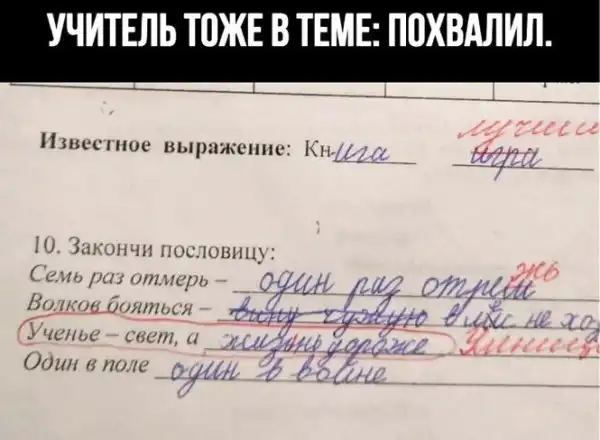 УЧИТЕЛЬ ТОЖЕ В ТЕМЕ: ПОХВАЛИЛ.
лучши
Известное выражение: Книга игра
10. Закончи пословицу:
Семь раз отмерь – один раз отрежь
Волков бояться – вину чужую в лес не хо
Ученье – свет, а жизнь дороже Умница
Один в поле один в войне